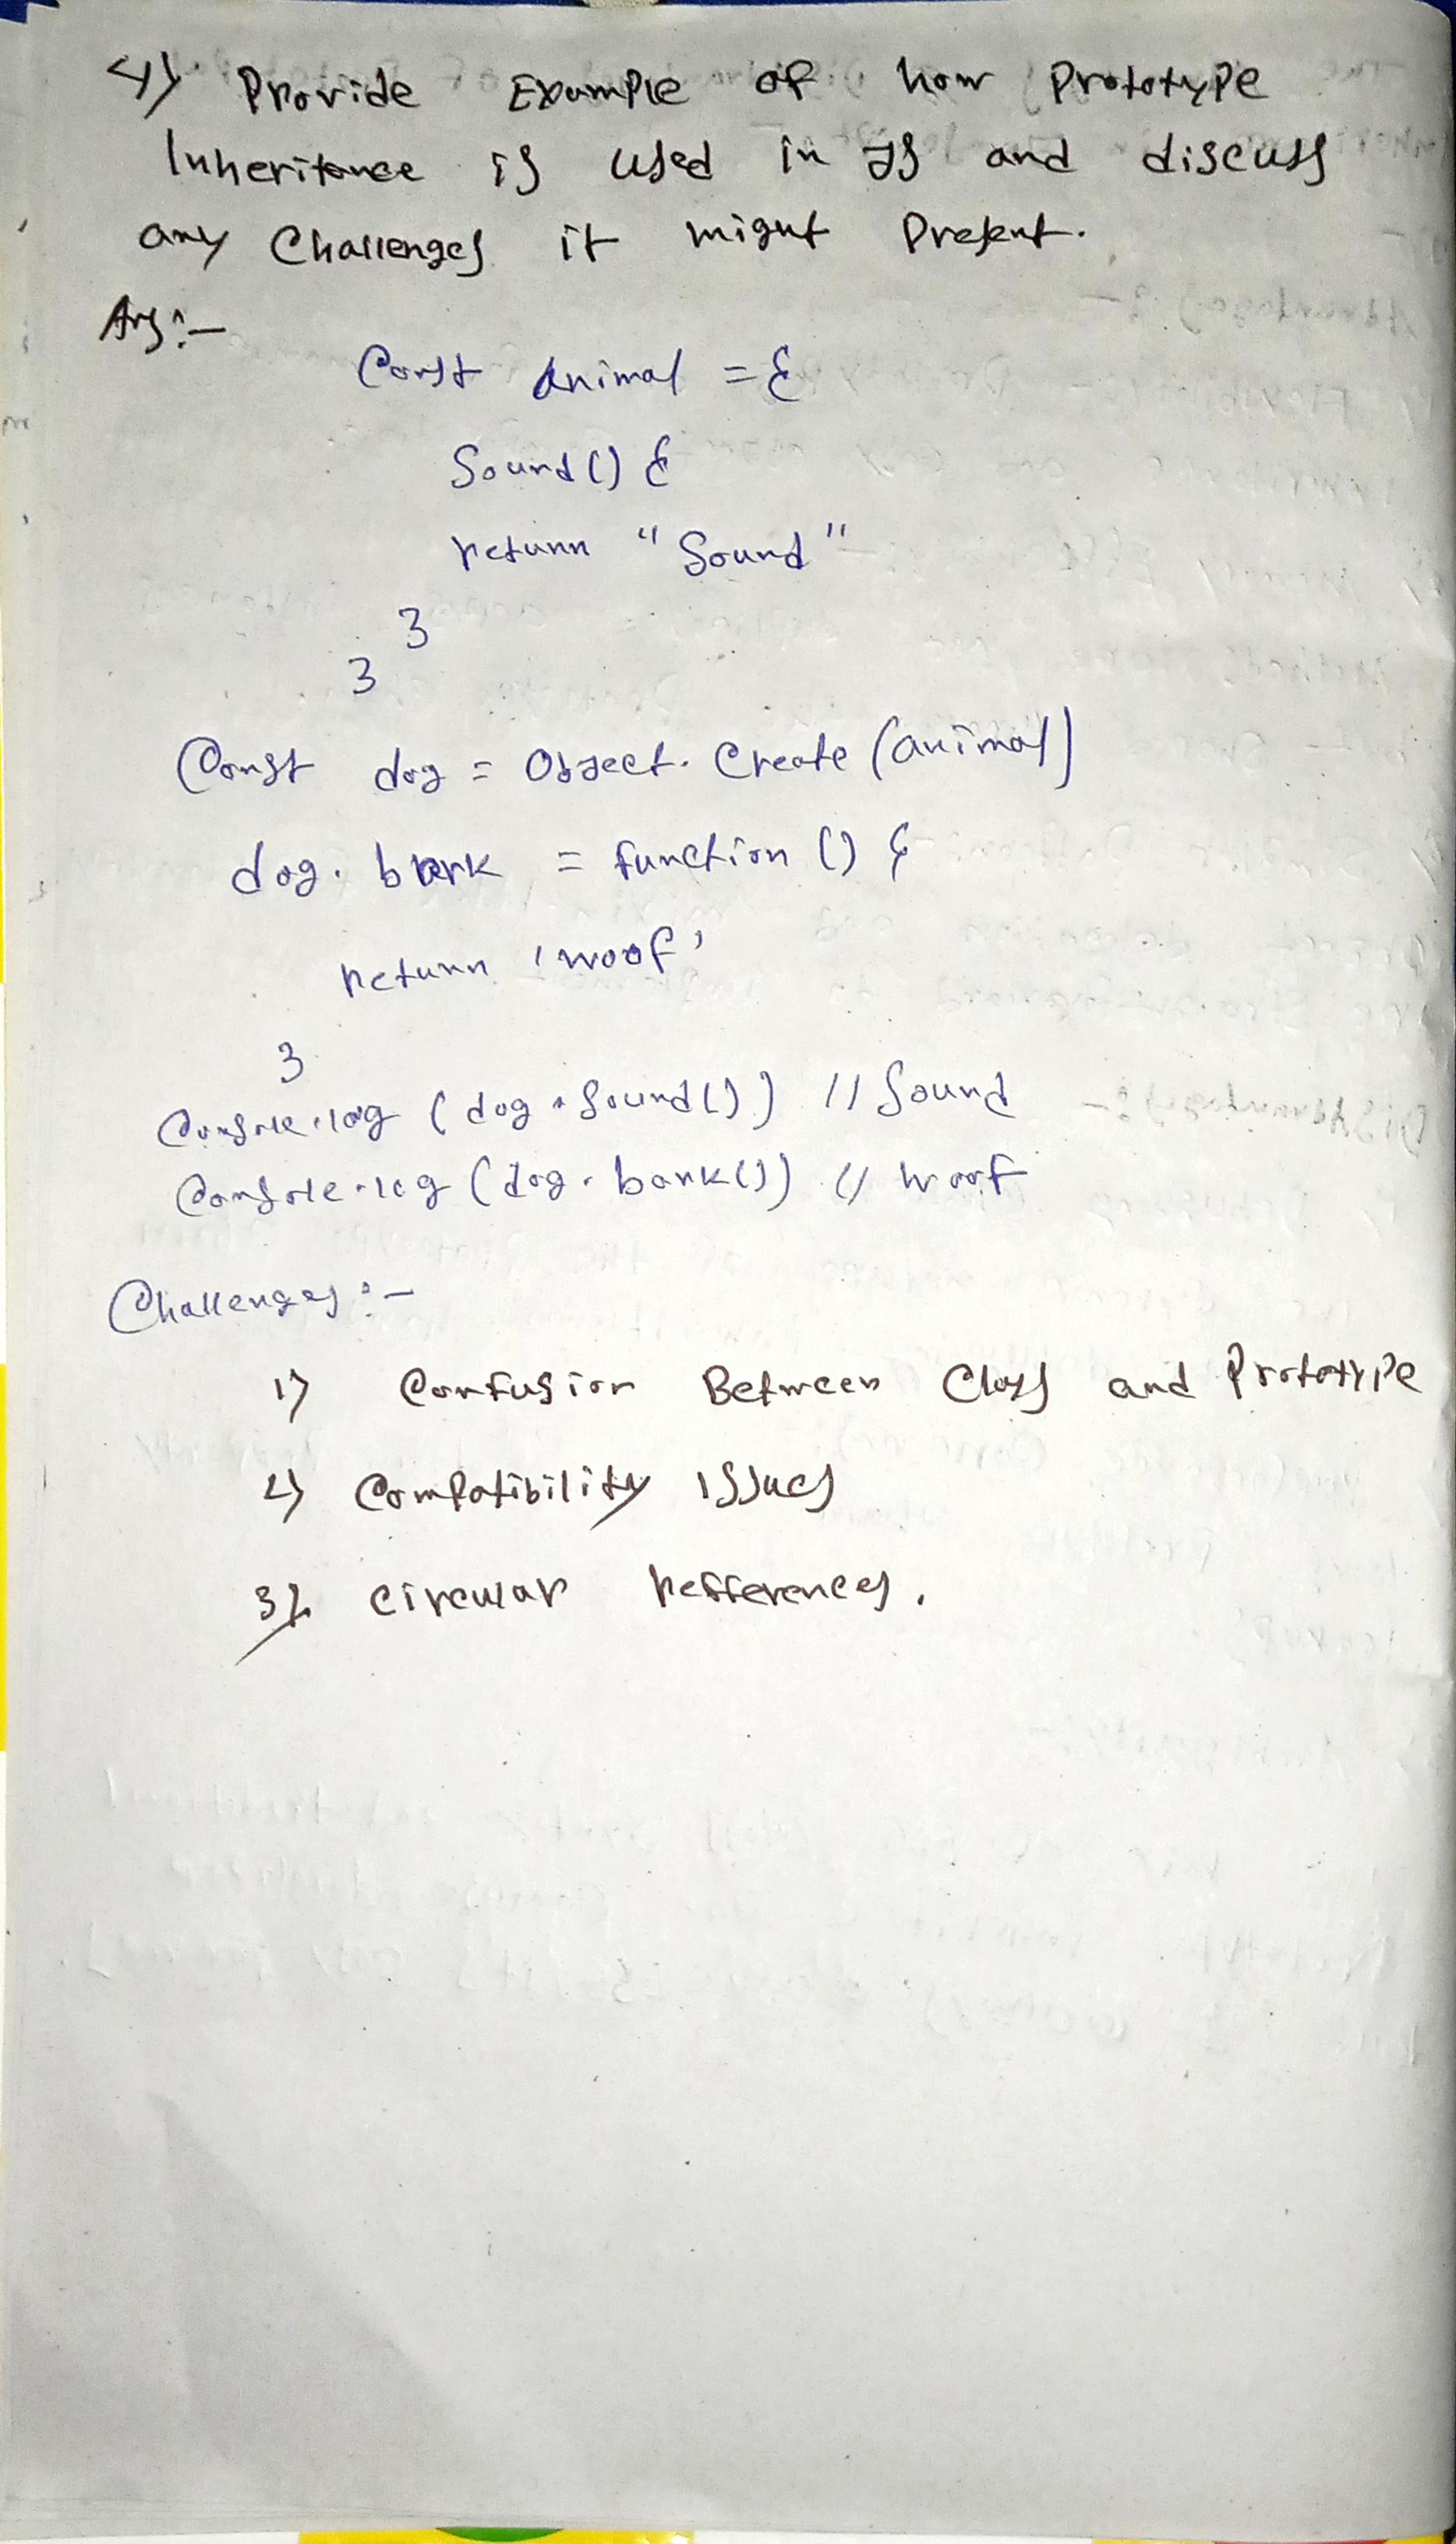 4) Provide Example of how Prototype
Inheritance is used in JS and discuss
any Challenges it might Present.
Ans:-
Const Animal = {
Sound() {
return "Sound"
}
}
Const dog = Object. Create (animal)
dog. bark = function () {
return 'woof'
}
Console.log (dog.Sound()) // Sound
Console.log (dog.bark()) // Woof
Challenges:-
1) Confusion Between Class and Prototype
2) Compatibility Issues
3) Circular Refferences.